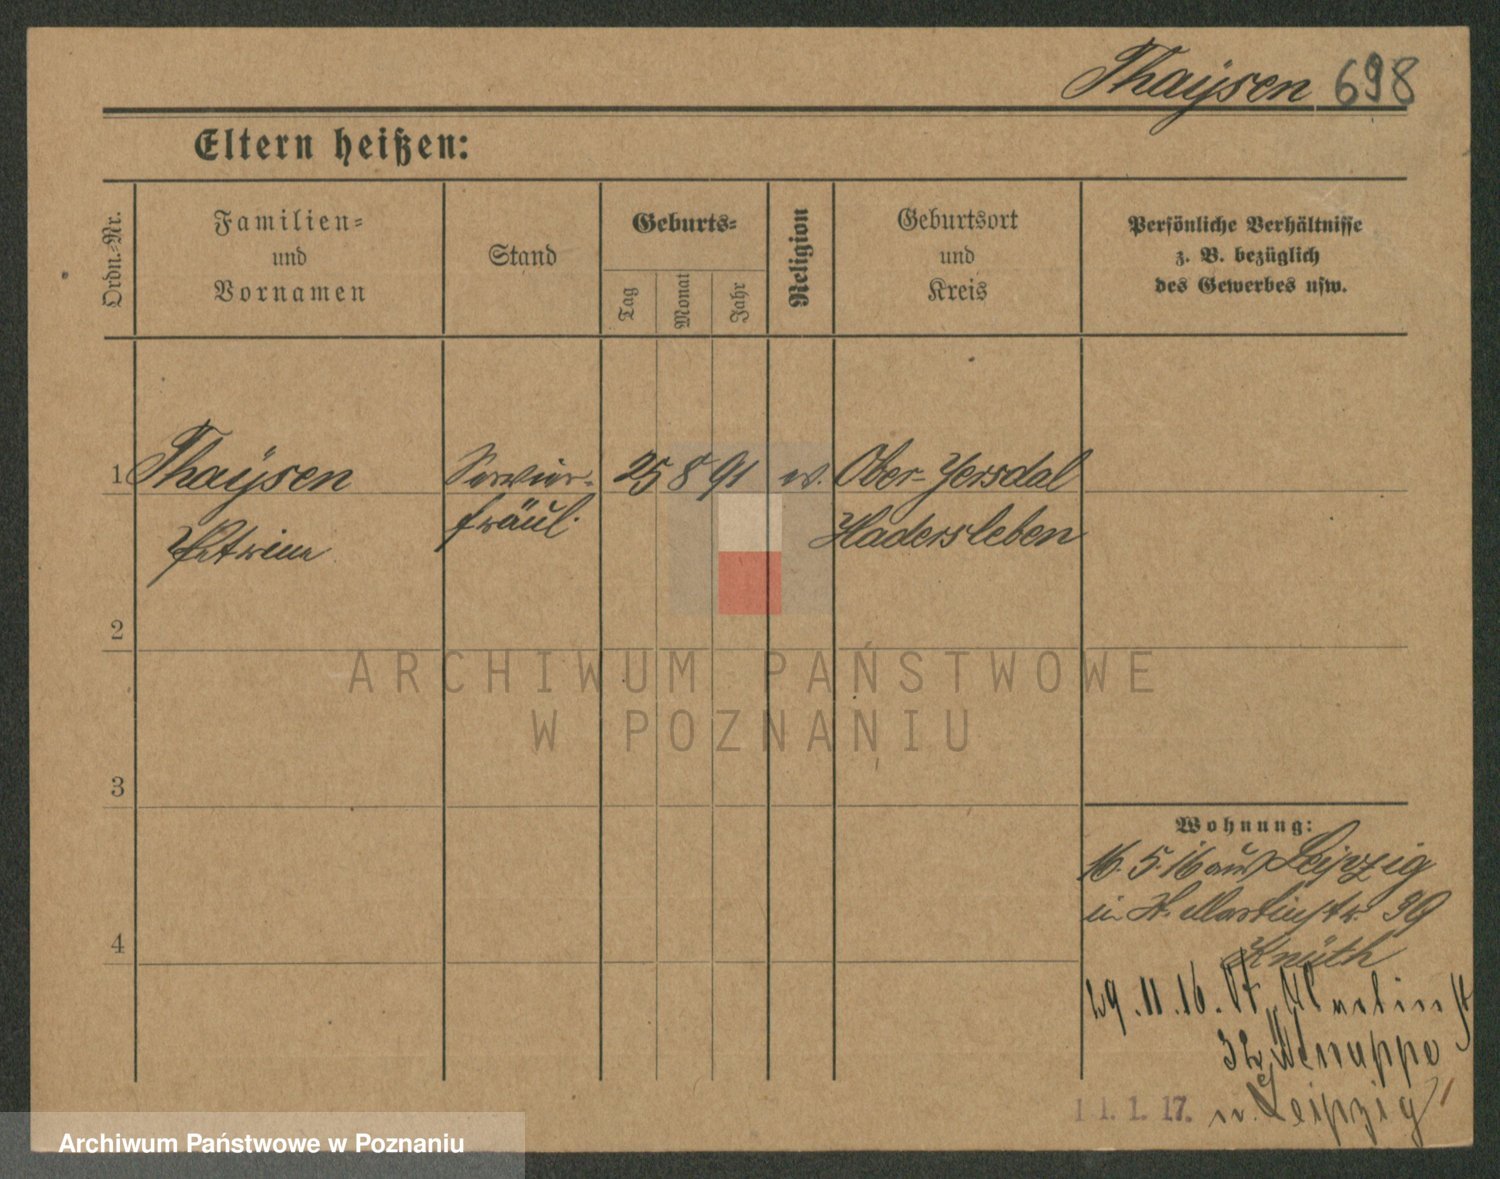 Thaysen 698
Eltern heißen:
Ordn.-Nr.
Familien-
und
Vornamen
Stand
Geburts-
Tag
Monat
Jahr
Religion
Geburtsort
und
Kreis
Persönliche Verhältnisse
z. B. bezüglich
des Gewerbes usw.
1 Thaysen Servier- 25 8 91 ev. Ober-Jersdal
Petrine fräul. Hadersleben
2
ARCHIWUM PAŃSTWOWE
W POZNANIU
3
Wohnung:
16.5.16 aus Leipzig
in St. Martinstr. 39
Knüth
4
29.11.16. St. Martinst
32
11.1.17. n. Leipzig
Archiwum Państwowe w Poznaniu